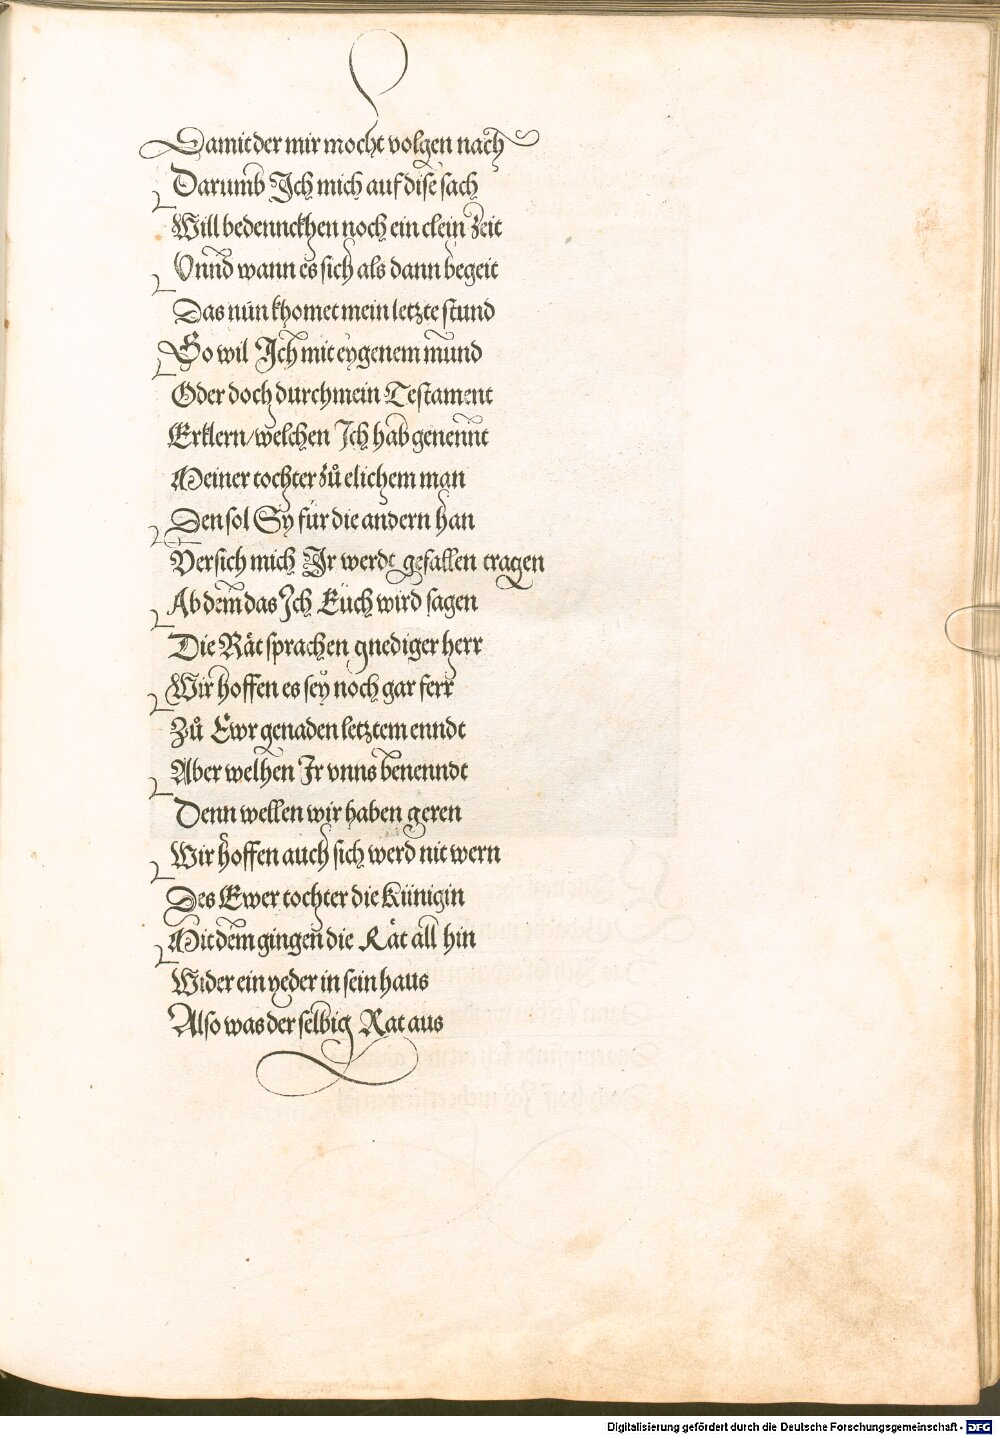 Damit der mir mocht volgen nach
Darumb Ich mich auf dise sach
Will bedennckhen noch ein clein Zeit
Vnnd wann es sich als dann begeit
Das nun khomet mein letzte stund
So wil Ich mit eygenem mund
Oder doch durch mein Testament
Erklern/welchen Ich hab genennt
Meiner tochter zů elichem man
Den sol Sy für die andern han
Versich mich Ir werdt gefallen tragen
Ab dem das Ich Eüch wird sagen
Die Rät sprachen gnediger herr
Wir hoffen es sey noch gar ferr
Zů Ewr genaden letztem enndt
Aber welhen Ir vnns benenndt
Denn wellen wir haben geren
Wir hoffen auch sich werd nit wern
Des Ewer tochter die Künigin
Mit dem gingen die Rät all hin
Wider ein yeder in sein haus
Also was der selbig Rat aus
Digitalisierung gefördert durch die Deutsche Forschungsgemeinschaft - DFG